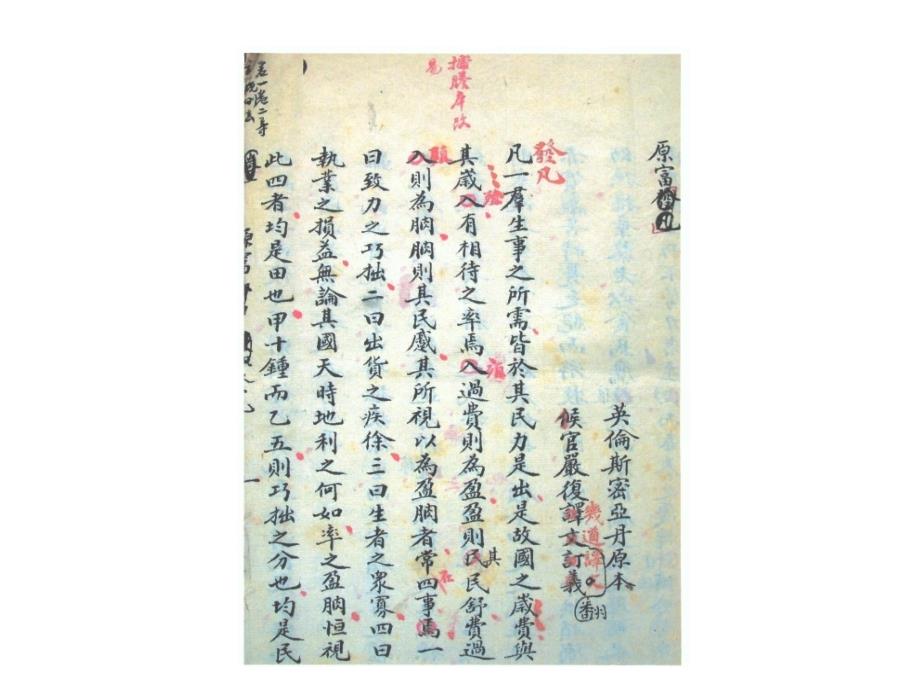 原富
英倫斯密亞丹原本
候官嚴復譯文訂義
幾道譯
翻
發凡
凡一羣生事之所需皆於其民力是出是故國之歲費與
其歲入有相待之率焉入過費則為盈盈則其民舒費過
入則為朒朒則其民蹙其所視以為盈朒者常四事焉一
曰致力之巧拙二曰出貨之疾徐三曰生者之衆寡四曰
執業之損益無論其國天時地利之何如率之盈朒恒視
此四者均是田也甲十鍾而乙五則巧拙之分也均是民